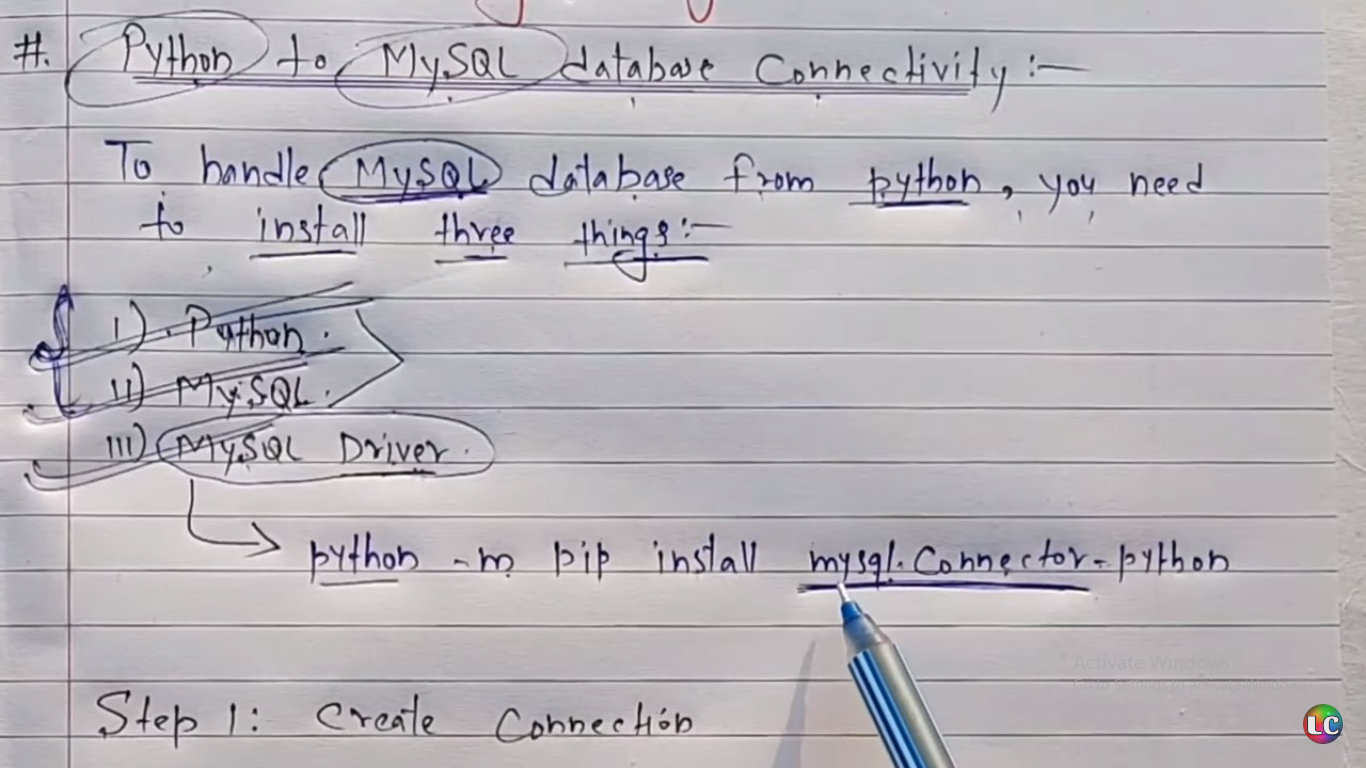 #. Python to MySQL database Connectivity :-
To handle MySQL database from python, you need
to install three things :-
i) . Python .
ii) MySQL .
iii) MySQL Driver .
python -m pip install mysql.Connector-python
Activate Windows
Go to Settings to activate Windows.
Step 1: Create Connection
LC